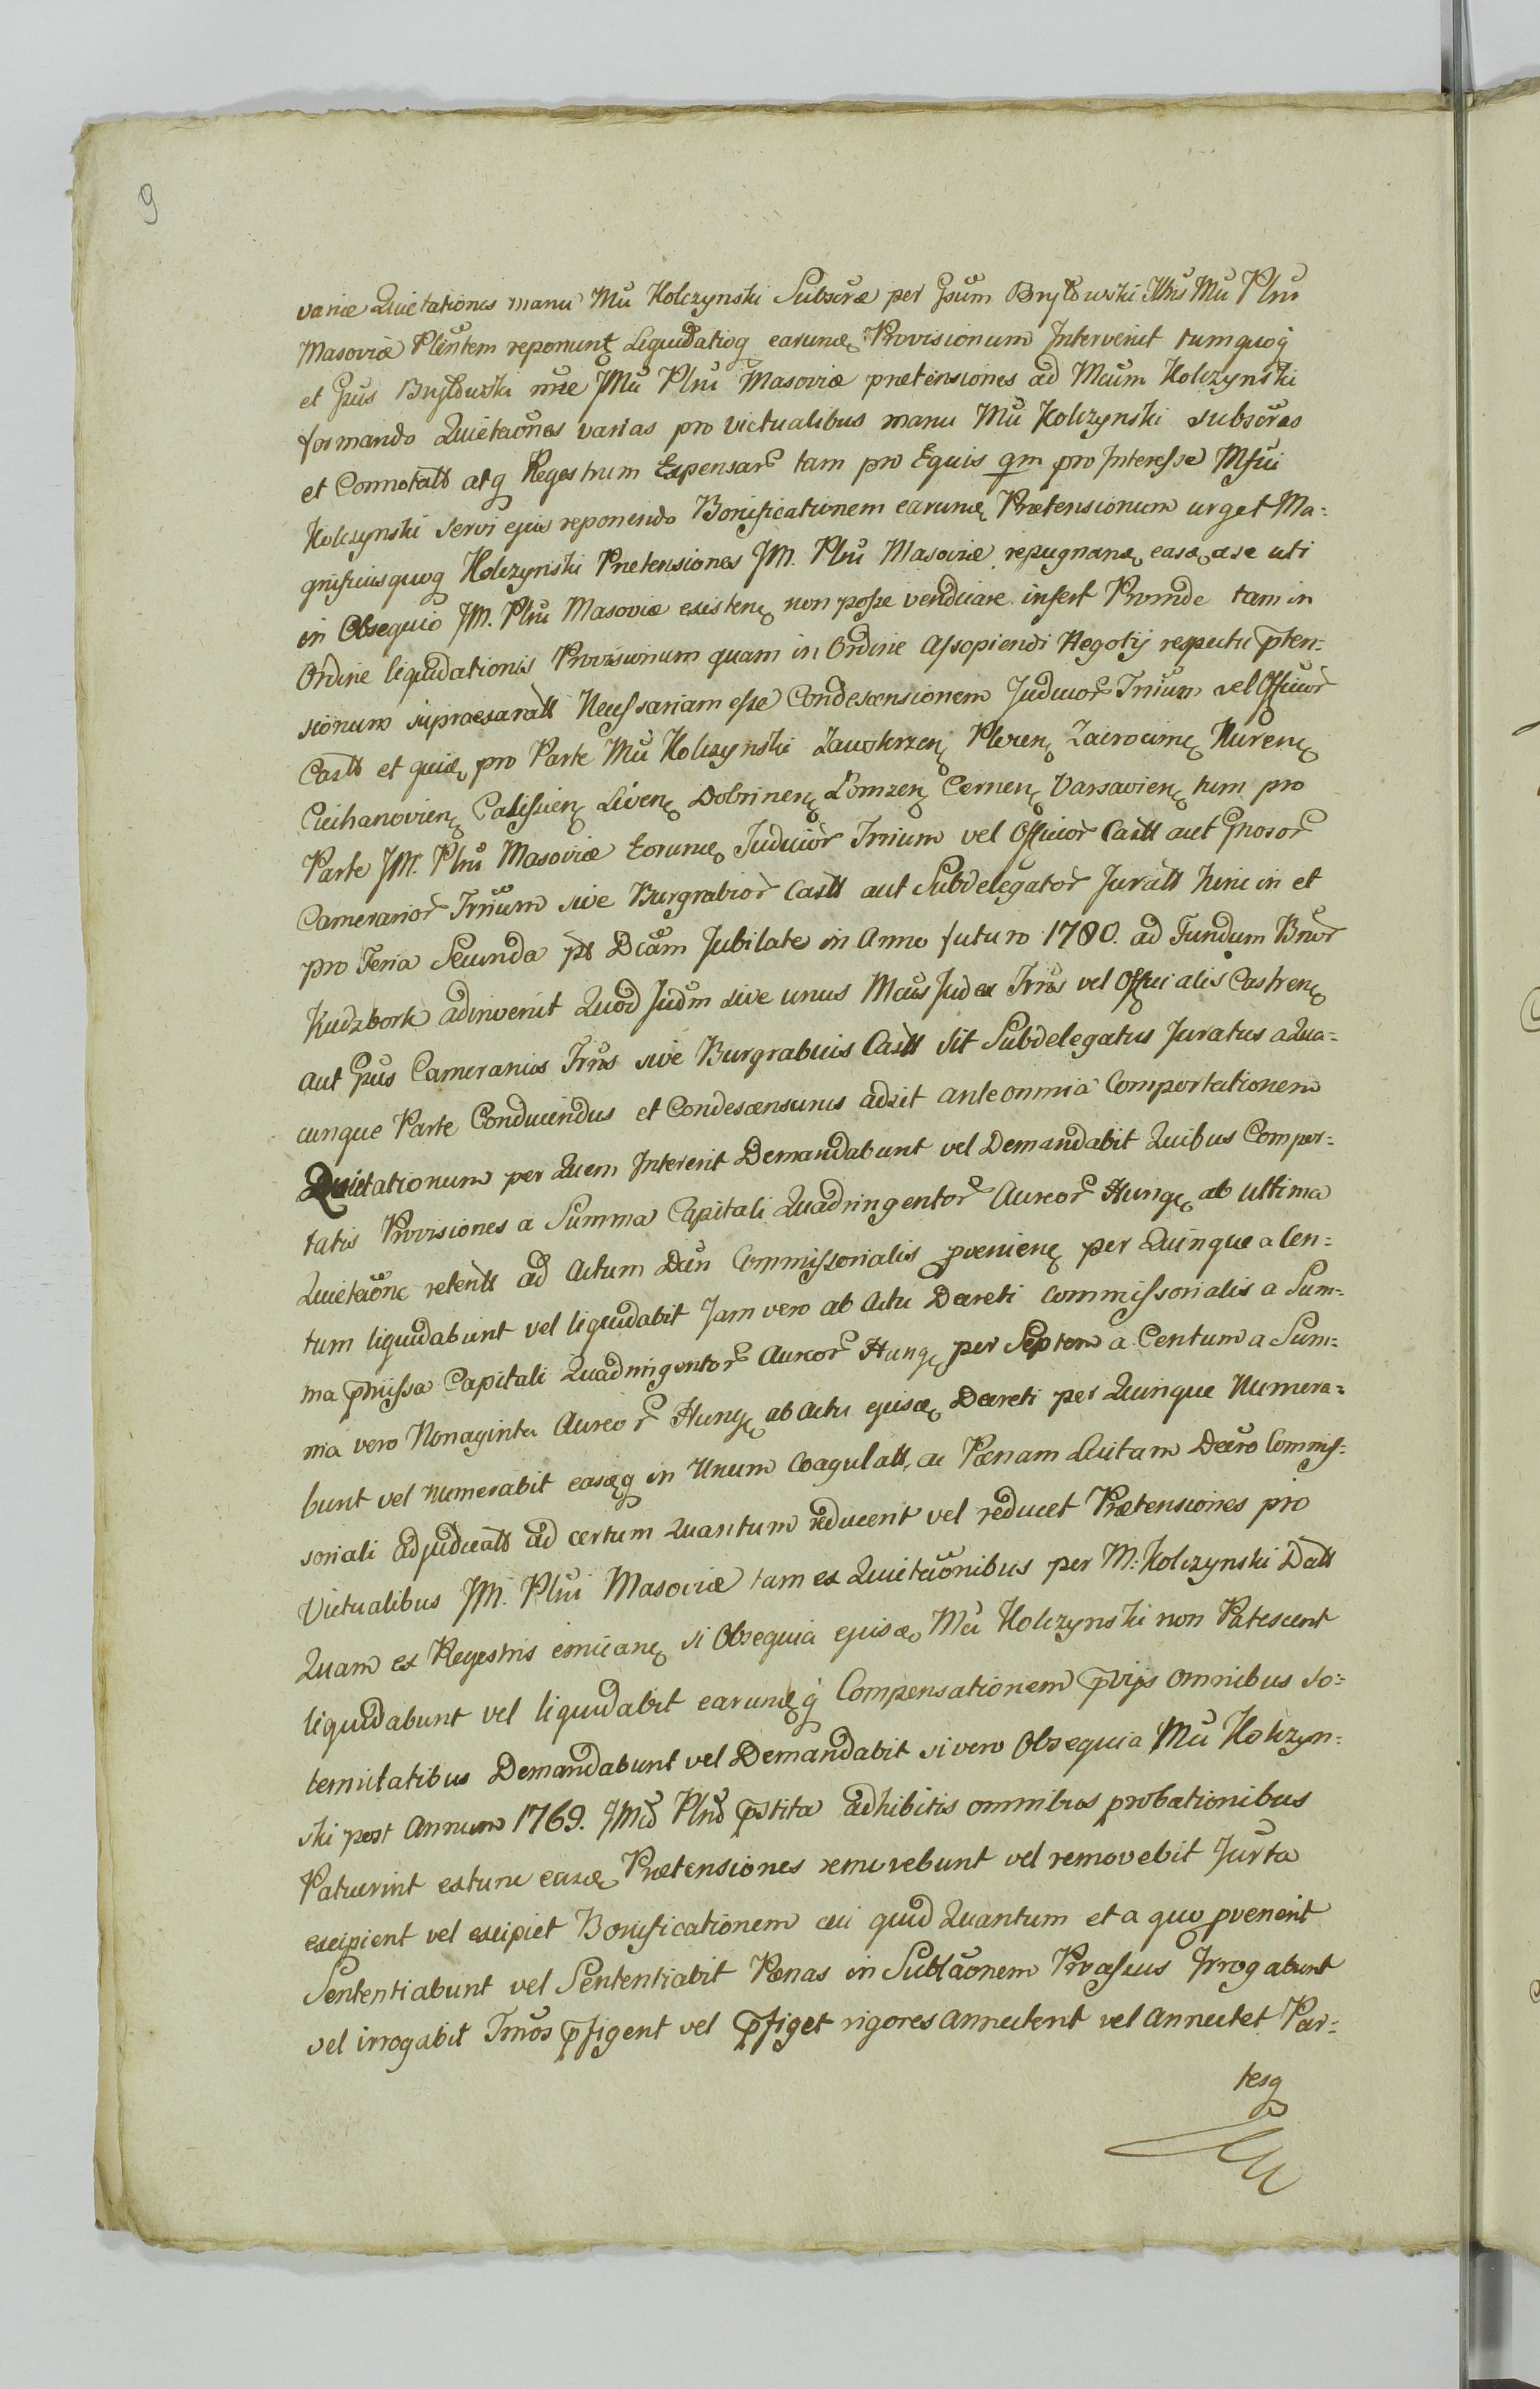 9
variæ Quietationes manu Mũ Kolczynski Subscræ per Gsum Brylowski Illris Mũ Plni
Masoviæ Plentem reponunt Liquidatioq earund Provisionum Intervenit tumquoq
et Gsus Brylowski nne JMũ Plni Masoviæ prætensiones ad Mcum Kolczynski
formando Quietaões varias pro victualibus manu Mũ Kolczynski subscras
et Connotatt atq Regestrum Expensar tam pro Equis qm pro Interesse Mfici
Kolczynski servi ejus reponendo Bonificationem earund Prætensionum urget Ma=
gnificusquoq Kolczynski Prætensiones JM. Plni Masoviæ repugnand easd ase uti
in Obsequio JM. Plni Masoviæ existen non posse vendicare infert Proinde tam in
Ordine liquidationis Provisionum quam in Ordine Assopiendi Negotij respectu pten=
sionum supraexaratt Necessariam esse Condescensionem Judicior Trrium vel Officior
Castt et quid pro Parte Mũ Kolczynski Zawskrzen Plocen Zacrocimen Nuren
Ciechanovien Calissien Liven Dobrinen Łomzen Cernen Varsavien tum pro
Parte JM. Plni Masoviæ Eorund Judicior Trrium vel Officior Castt aut Gnosor
Camerarior Trrium sive Burgrabior Castt aut Subdelegator Juratt hinc in et
pro Feria Secunda pt Dcam Jubilate in Anno futuro 1780. ad Fundum Bnor
Kudzbork adinvenit Quod Judm sive unus Mcus Judex Trris vel Officialis Castren
aut Gsus Camerarius Trris sive Burgrabius Castt sit Subdelegatus Juratus a Qua=
cunque Parte Conducendus et Condescensurus adsit ante omnia Comportationem
Quietationum per Quem Intererit Demandabunt vel Demandabit Quibus Compor=
tatis Provisiones a Summa Capitali Quadringentor Aureor Hung ab ultima
Quietaõne retentt ad Actum Dcti Commissorialis pvenien per Quinque a Cen=
tum liquidabunt vel liquidabit Jam vero ab Actu Decreti Commissorialis a Sum=
ma pmissa Capitali Quadringentor Aureor Hung per Septem a Centum a Sum=
ma vero Nonaginta Aureor Hung ab Actu ejusd Decreti per Quinque Numera=
bunt vel numerabit easdq in Unum Coagulatt, ac Pœnam Luitam Dcro Commis=
soriali adjudicatt ad certum Quantum reducent vel reducet Prætensiones pro
Victualibus JM. Plni Masoviæ tam ex Quietaõnibus per M. Kolczynski Datt
Quam ex Regestris emican si Obsequia ejusd Mũ Kolczynski non Patescent
liquidabunt vel liquidabit earundq Compensationem pvijs omnibus So=
lemnitatibus Demandabunt vel Demandabit si vero Obsequia Mũ Kolczyn=
ski post Annum 1769. JMcd Plnd pstita adhibitis omnibus probationibus
Patuerint extunc easd Prætensiones removebunt vel removebit Juxta
excipient vel excipiet Bonificationem cui quid Quantum et a quo pvenerit
Sententiabunt vel Sententiabit Pœnas in Sublaõnem Processus Irrogabunt
vel irrogabit Trnos pfigent vel pfiget rigores annectent vel Annectet Par=
tesq